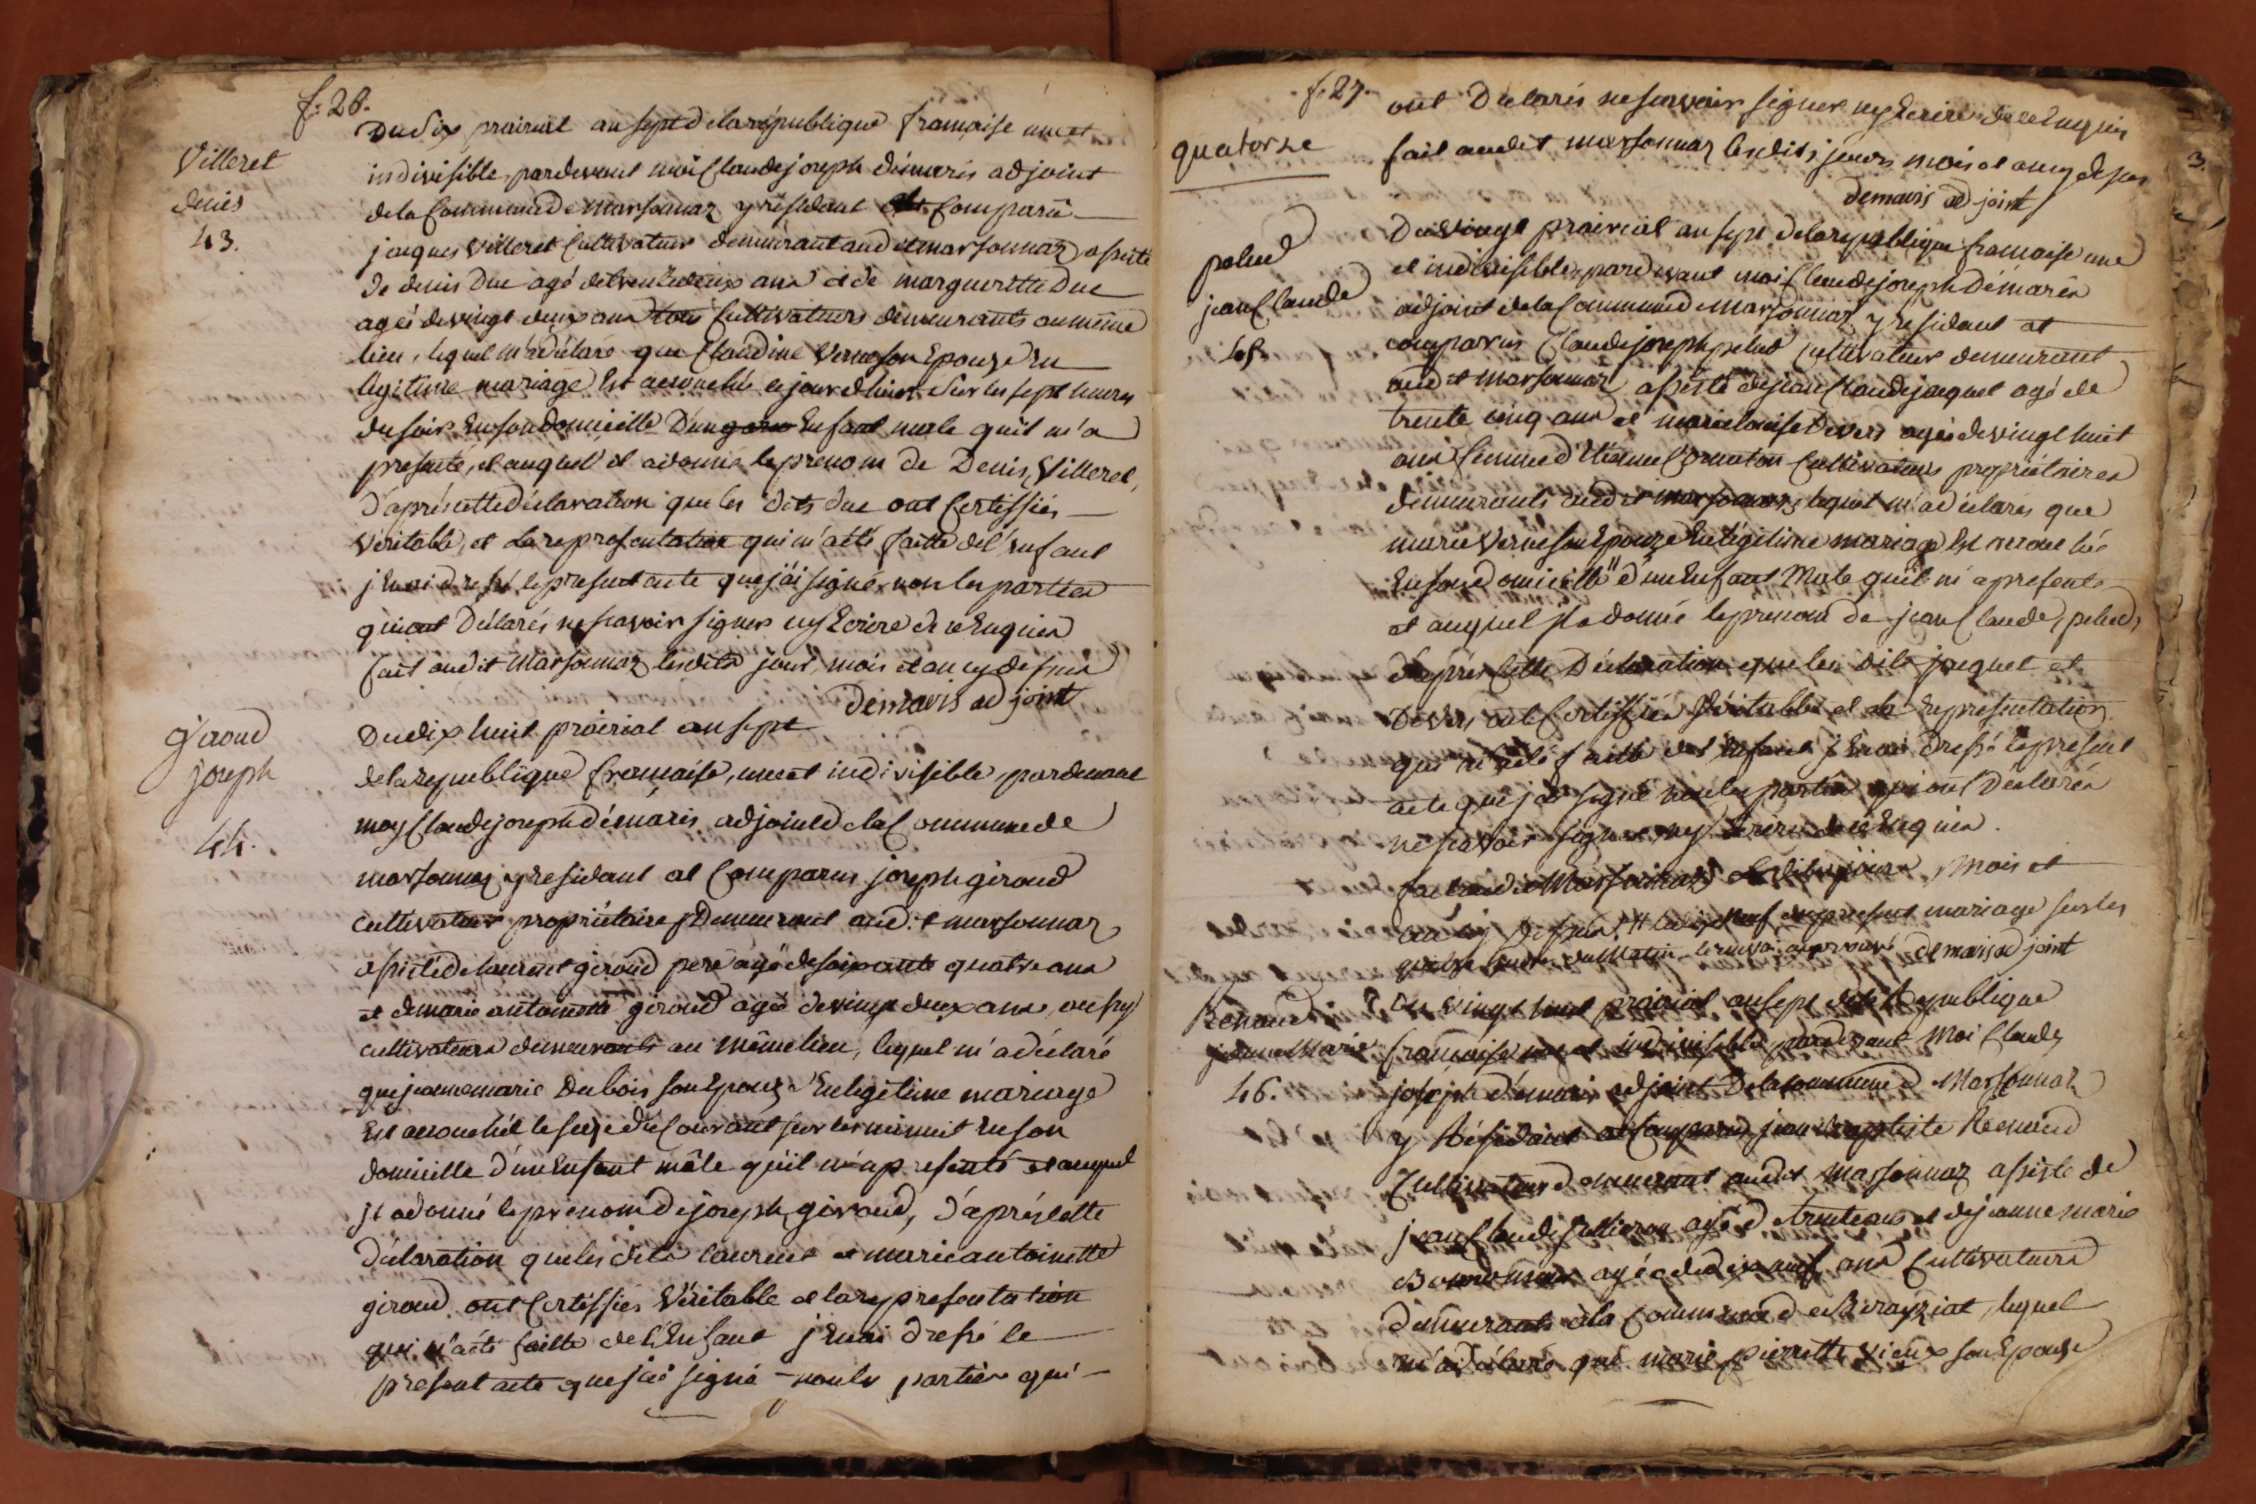 f: 26.
Villeret
denis
43.
Du dix prairial an sept de la république françoise une et
indivisible, pardevant moi Claude joseph démaris adjoint
de la Commune de marsonnaz y résidant est Comparû
jacques Villeret Cultivateur demeurant audit marsonnaz assisté
de denis Duc agé de trente deux ans et de margueritte Duc
agés de vingt deux ans tous Cultivateurs demeurants au même
lieu, lequel m'a déclaré que Claudine Verne son Epouze En
légitime mariage Est accouchée ce jour d'huer Sur les sept heures
du soir En son domicille D'un Enfant male qu'il m'a
presenté, et auquel il a donné le prenom de Denis, Villeret,
D'aprés cette déclaration que les dits duc ont Certiffiés
véritable, et la representation qui m'a été faitte de l'enfant
j'En ai dressé le present acte que j'ai signé non les parties
qui ont Délarés ne scavoir signer ny Ecrire de ce Enquies
fait audit Marsonnaz lesdits jour, mois et an cy dessus
Demaris adjoint
Giroud
joseph
44.
Du dix huit prairial an sept
de la republique francoise, une et indivisible, pardevant
moy Claude joseph démaris adjoint de la Commune de
marsonnaz y residant est Comparus joseph giroud
Cultivateur propriétaire Demeurant audit marsonnaz
assisté de laurent giroud pere agé de soixante quatre ans
et de marie antoinette giroud agée de vingt deux ans, aussy
cultivateurs demeurants au même lieu, lequel m'a déclaré
que jeanne marie Dubois son Epouze En legitime mariage
Est accouchée le seize du Courant sur les minuit En son
domicille d'un Enfant mâle qu'il m'a presenté et auquel
Il a donné le prenom de joseph giroud, d'aprés cette
déclaration que les dits laurent et marie antoinette
giroud ont Certiffies Véritable et la representation
qui m'a été faitte de l'Enfant j'En ai dressé le
present acte que j'ai signé non les parties qui
f. 27.
quatorze
3.
ont Declarés ne scavoir signer ny Ecrire de ce Enquies
fait audit marsonnaz lesdits jours mois et an cy dessus
demaris adjoint
pelud
jean Claude
45
Du vingt prairial an sept de la republique francoise une
et indivisible, pardevant moi Claude joseph Démaris
adjoint de la Commune de Marsonnaz y residant est
comparus Claude joseph pelud Cultivateur demeurant
audit marsonnaz assisté de jean Claude jacquet agé de
trente cinq ans et marie louise Devers agée de vingt huit
ans femme d'Etienne Cultivateurs propriétaires
demeurants audit marsonnaz, lequel m'a déclarés que
marie Verne son Epouze En légitime mariage Est accouchée
En son domicille d'un Enfant Male qu'il m'a presenté
et auquel Il a donné le prenom de jean Claude, pelud,
d'aprés cette Déclaration que les dits jacquet et
Devers ont Certiffiés Véritable et la representation
qui m'a été faitte de l'Enfant j'En ai dressé le present
acte que j'ai signé non les parties qui ont Declarés
ne scavoir signer ny Ecrire de ce Enquies.
fait audit Marsonnaz lesdits jours, Mois et
an cy dessus. du present mariage sur les
heures du Matin demaris adjoint
Renaud
jeanne Marie
46.
Du vingt huit prairial an sept de la République
francoise une et indivisible pardevant Moi Claude
joseph démaris adjoint De la commune de Marsonnaz
y Résidant est comparus jean Baptiste Renaud
Cultivateur demeurant audit Marsonnaz assisté de
jean Claude agé de trente ans et de jeanne marie
agée de dix neuf ans Cultivateurs
demeurants à la Commune de Beraÿziat, lequel
m'a déclaré que marie pierrette vieux son Epouze